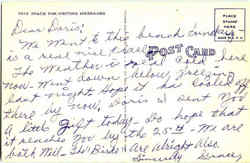 THIS SPACE FOR WRITING MESSAGES
POST CARD
PLACE
STAMP
HERE
Dear Doris:
We Went to the beach Sunday
is a real nice
The Weather is real Cold here
now. Went down below freezing
last night. Hope it has Cooled off
there by now. Doris I sent You
A little Gift today. Do hope that
it reaches You by the 25th. We are
both Well. The Birds Are Alright Also.
Sincerely Grace